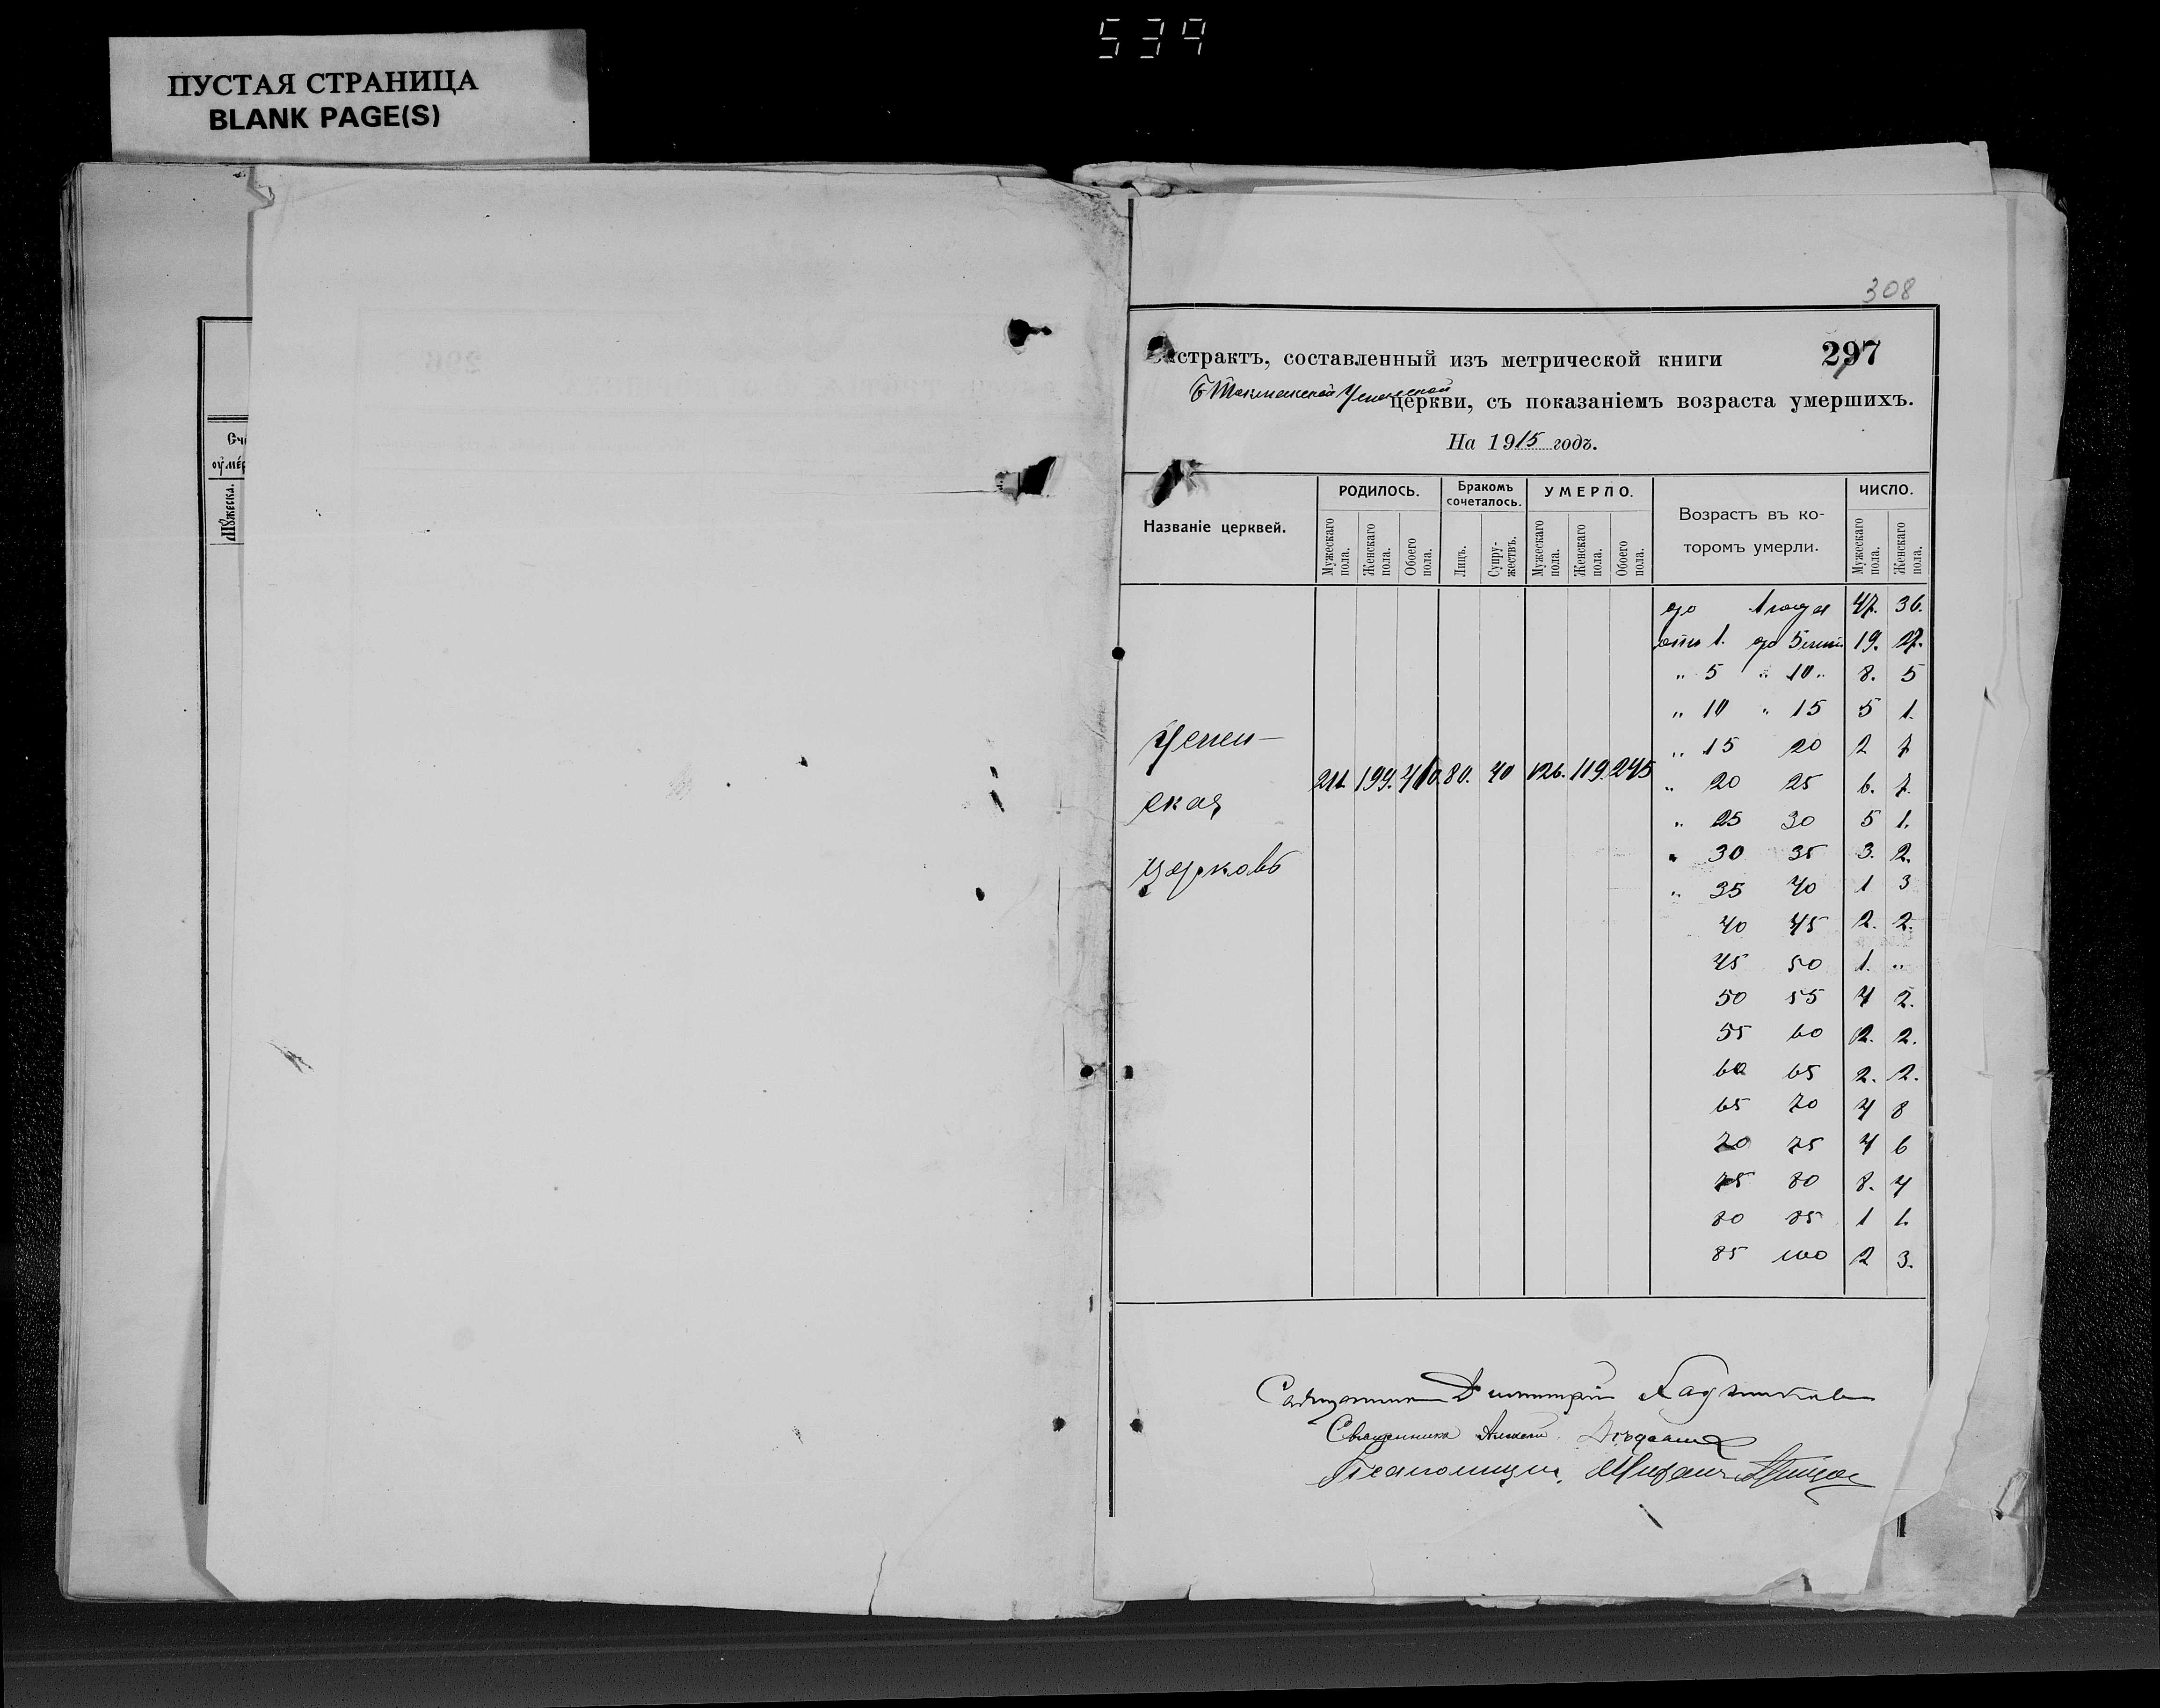 539
ПУСТАЯ СТРАНИЦА
BLANK PAGE(S)
308
297
Экстрактъ, составленный изъ метрической книги
Б Токмакской Успенской церкви, съ показаніемъ возраста умершихъ.
На 1915 годъ.
Названіе церквей.
РОДИЛОСЬ.
Бракомъ сочеталось.
УМЕРЛО.
Возрастъ въ которомъ умерли.
ЧИСЛО.
Мужескаго пола.
Женскаго пола.
Обоего пола.
Лицъ.
Супружествъ.
Мужескаго пола.
Женскаго пола.
Обоего пола.
Мужескаго пола.
Женскаго пола.
Успен-
ская
церковь
211 199. 410. 80. 40 126. 119. 245
до 1 года 47. 36.
отъ 1. до 5 лѣтъ 19. 27.
" 5 " 10 " 8. 5
" 10 " 15 5 1.
" 15 20 2 7
" 20 25 6. 7.
" 25 30 5 1.
" 30 35 3. 2.
" 35 40 1 3
40 45 2. 2.
45 50 1. "
50 55 4 2.
55 60 2. 2.
60 65 2. 2.
65 70 4 8
70 75 4 6
75 80 8. 4
80 85 1 1.
85 100 2 3.
Священникъ Димитрій
Священникъ Алексѣй
Псаломщикъ